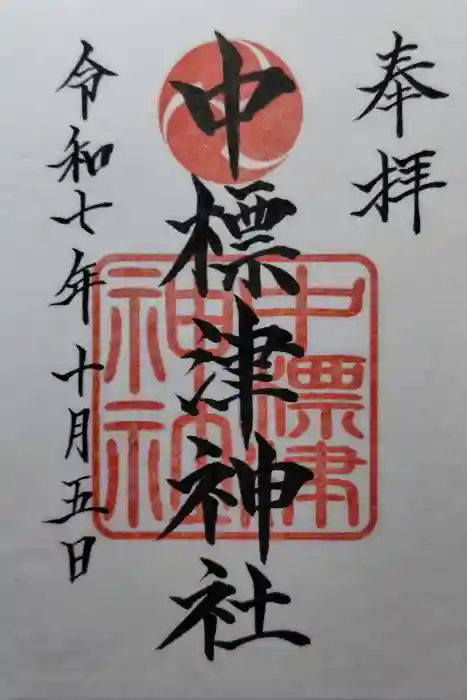 奉拝
中標津神社
令和七年十月五日
中標津
神社